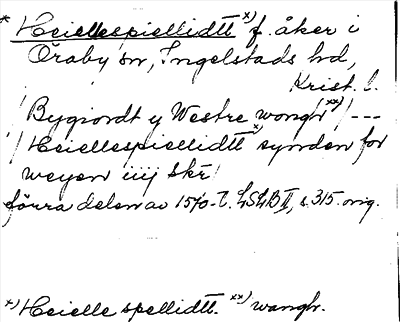 * Heiellespiellidtt x) f. åker i
Öraby sn, Ingelstads hd,
Krist. l.
/Bygiordt y Westre wongh xx)/ ---
/Heiellespiellidtt x) synden for
weyen iiij skr/
förra delen av 1570-t. LSLB II, s. 315. orig.
x) Heielle spellidtt. xx) wanghr.